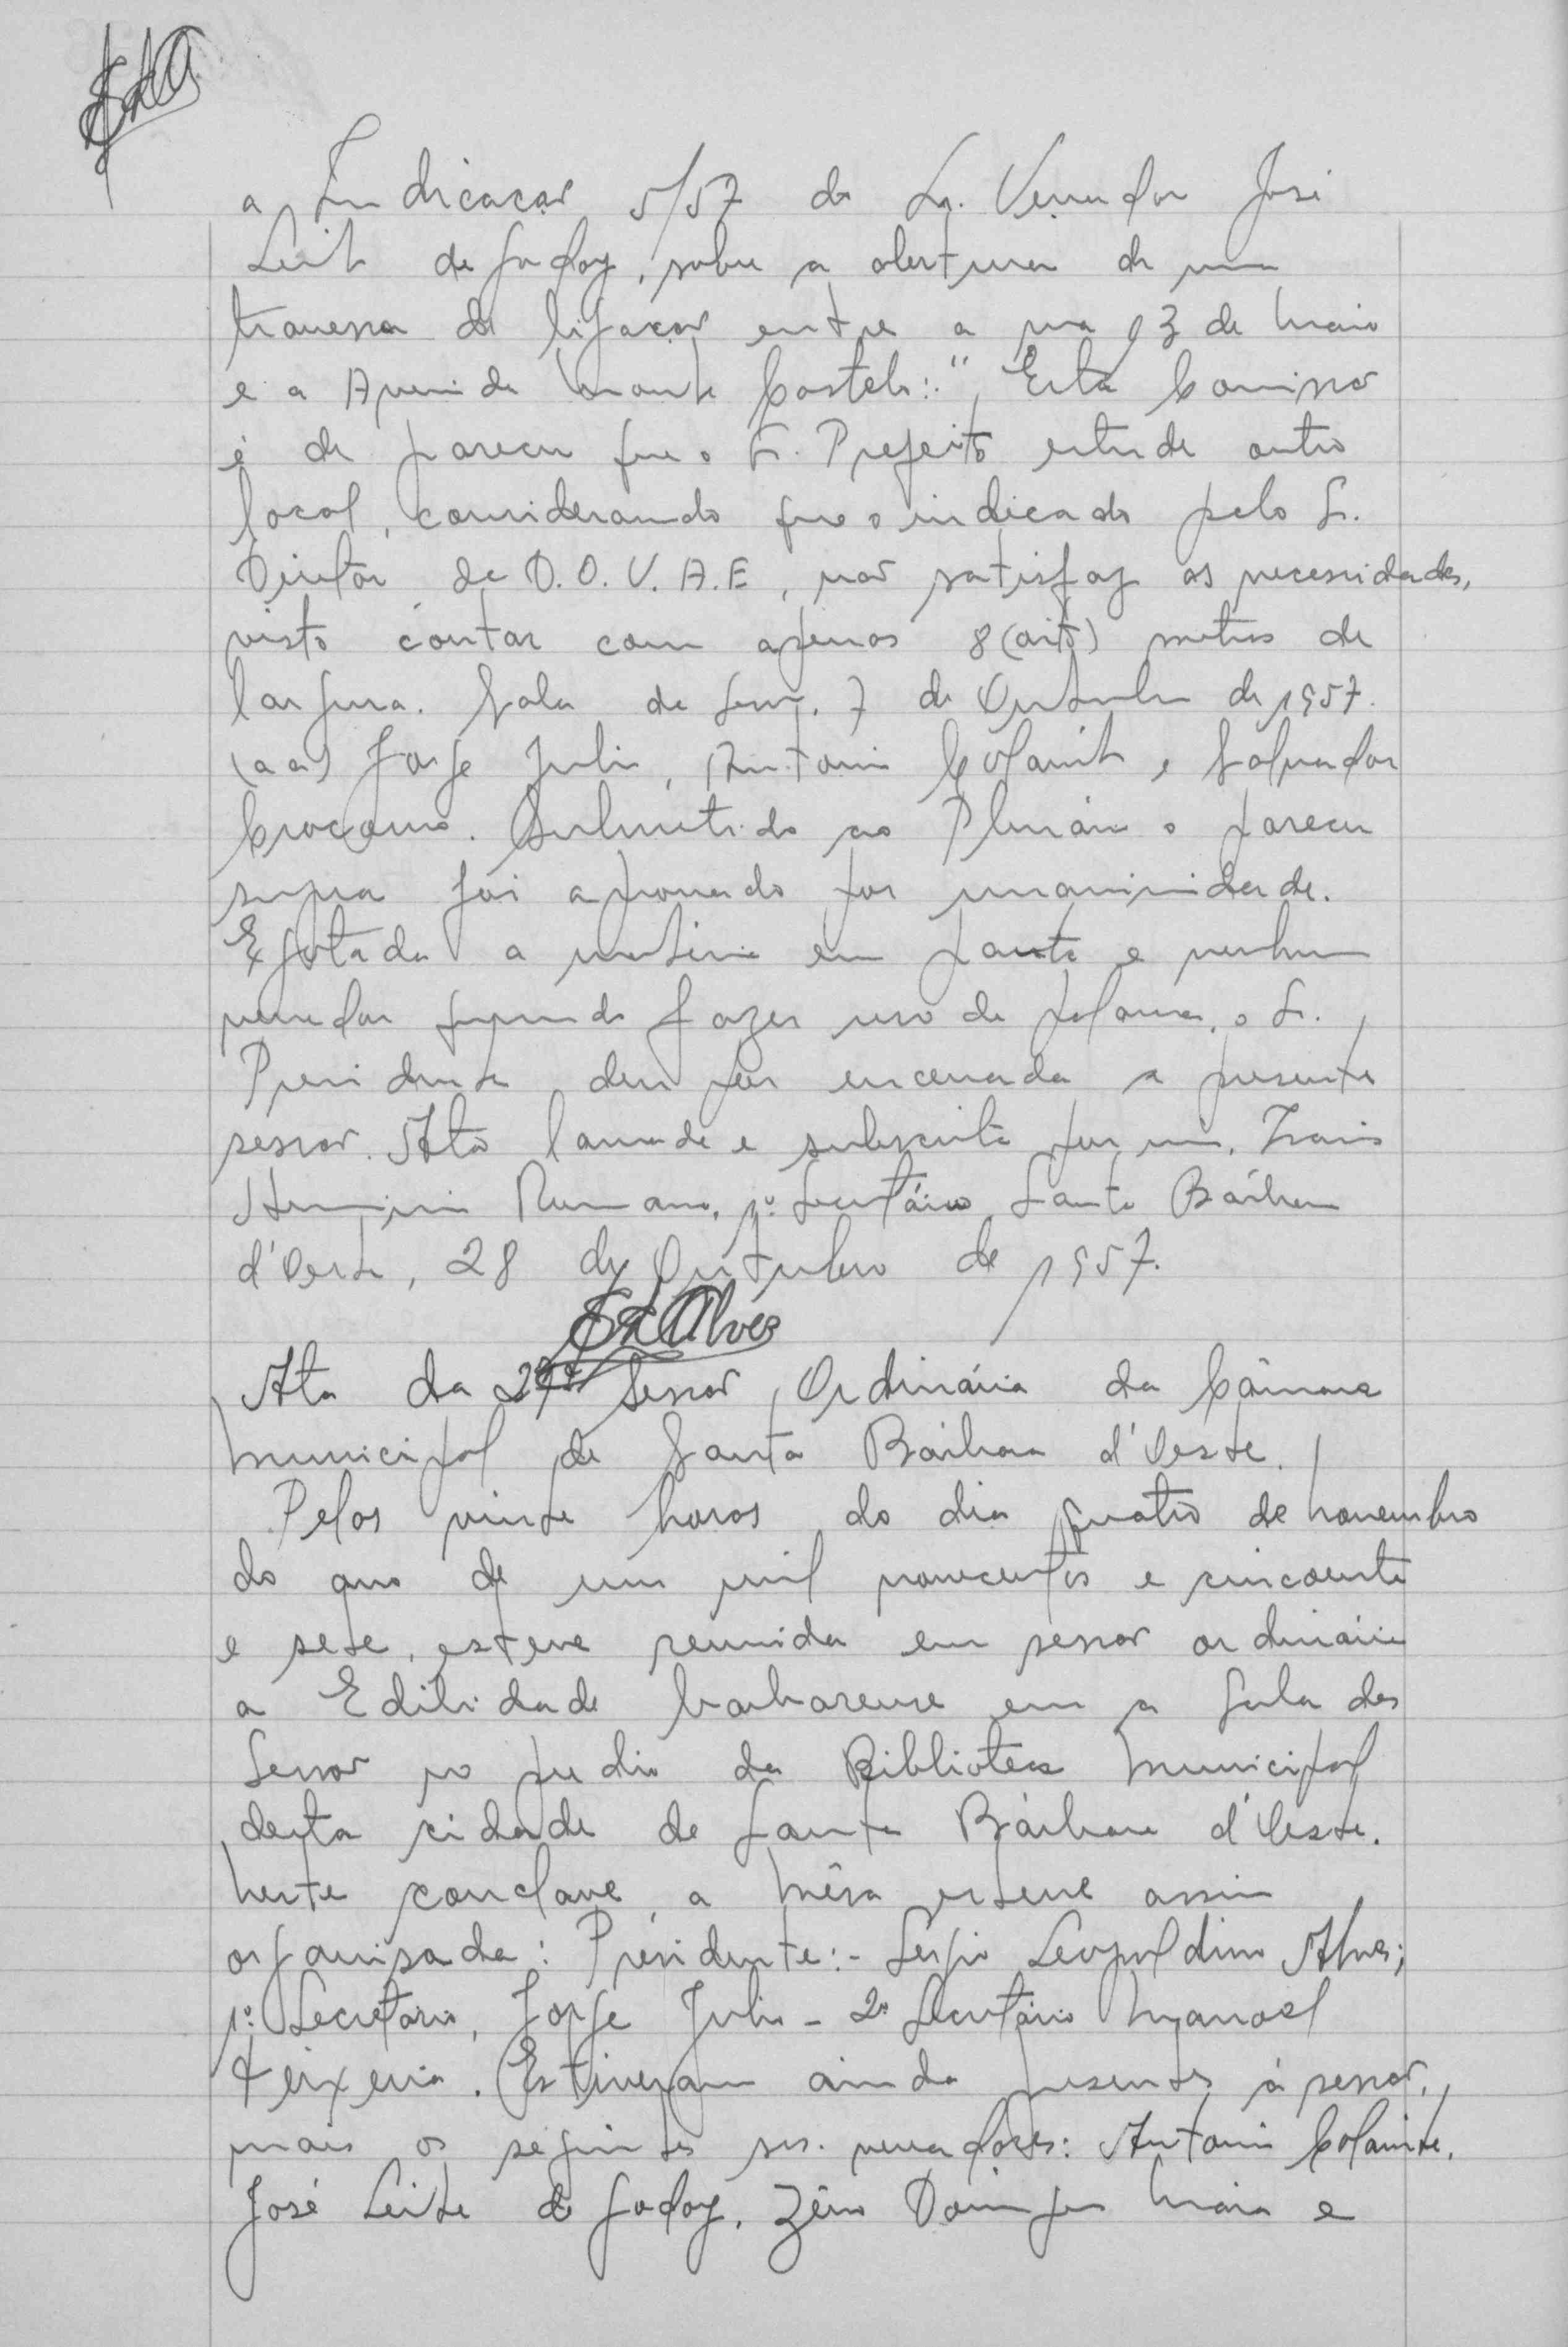 a Indicação 5/57 do Sr. Vereador José
Leite de Godoy, sobre a abertura de uma
travessa de ligação entre a rua 13 de Maio
e a Avenida Monte Castelo: "Esta Comissão
é de parecer que o Sr. Prefeito estude outro
local, considerando que o indicado pelo Sr.
Diretor de D.O.V.A.E, não satisfaz as necessidades,
visto contar com apenas 8 (oito) metros de
largura. Sala de Sessões. 7 de Outubro de 1957.
(aa) Jorge Julio, Antonio Colamite e Salvador
Crocomo. Submetido ao Plenário o parecer
supra foi aprovado por unanimidade.
Esgotada a matéria em pauta e nenhum
vereador querendo fazer uso da palavra, o Sr.
Presidente deu por encerrada a presente
sessão. Ata lavrada e subscrita por mim,
Romano, 1º Secretário. Santa Bárbara
d'Oeste, 28 de Outubro de 1957.
SLAlves
Ata da Sessão Ordinária da Câmara
Municipal de Santa Bárbara d'Oeste.
Pelas vinte horas do dia quatro de novembro
do ano de um mil novecentos e cincoenta
e sete, esteve reunida em sessão ordinária
a Edilidade barbarense em a Sala das
Sessões no prédio da Biblioteca Municipal
desta cidade de Santa Bárbara d'Oeste.
Neste conclave, a Mêsa esteve assim
organisada: Presidente:- Sergio Leopoldino Alves;
1º Secretário, Jorge Julio - 2º Secretário Manoel
Teixeira. Estiveram ainda presentes à sessão,
mais os seguintes srs. vereadores: Antonio Colamite,
José Leite de Godoy, Zêno Maia e